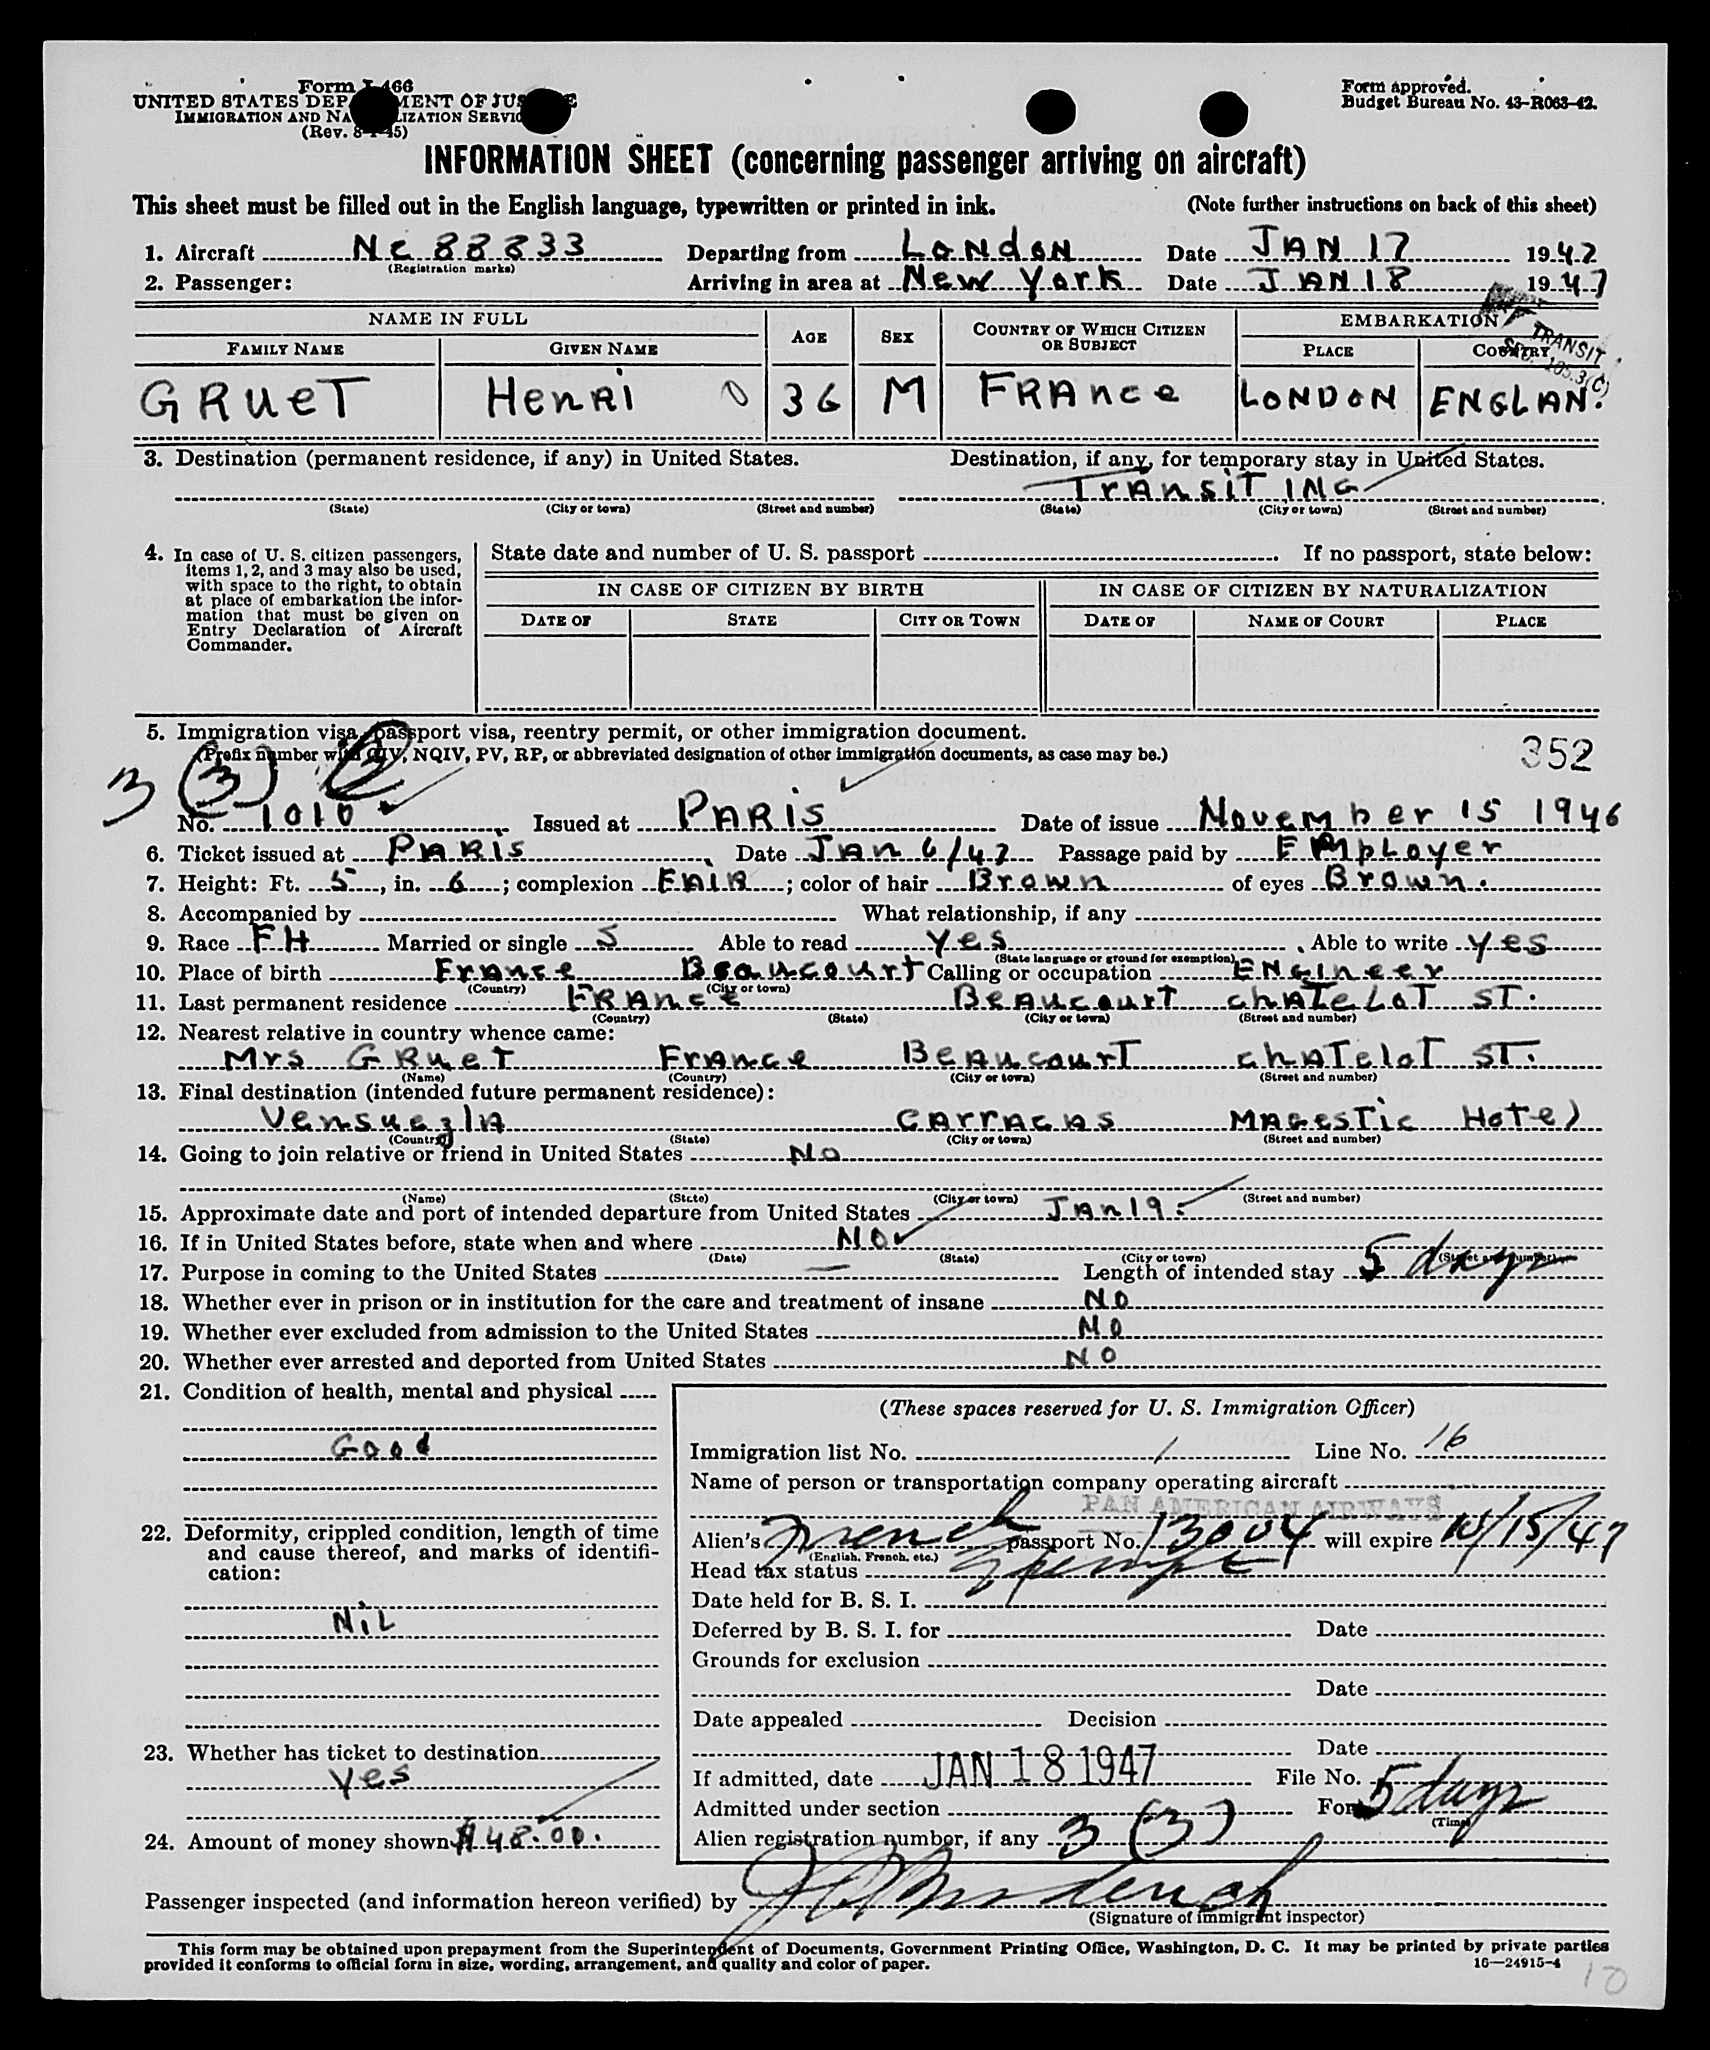 Form I-466
UNITED STATES DEPARTMENT OF JUSTICE
IMMIGRATION AND NATURALIZATION SERVICE
(Rev. 8-1-45)
Form approved.
Budget Bureau No. 43-R063-42.
INFORMATION SHEET (concerning passenger arriving on aircraft)
This sheet must be filled out in the English language, typewritten or printed in ink. (Note further instructions on back of this sheet)
1. Aircraft NC 88833 Departing from LONDON Date JAN 17 1947
(Registration marks)
2. Passenger: Arriving in area at New York Date JAN 18 1947
NAME IN FULL AGE SEX COUNTRY OF WHICH CITIZEN OR SUBJECT EMBARKATION
FAMILY NAME GIVEN NAME PLACE COUNTRY
TRANSIT
SEC. 105.3(C)
GRUET Henri 0 36 M FRANCE LONDON ENGLAN.
3. Destination (permanent residence, if any) in United States. Destination, if any, for temporary stay in United States.
TransiT ING
(State) (City or town) (Street and number) (State) (City or town) (Street and number)
4. In case of U. S. citizen passengers, items 1, 2, and 3 may also be used, with space to the right, to obtain at place of embarkation the information that must be given on Entry Declaration of Aircraft Commander.
State date and number of U. S. passport If no passport, state below:
IN CASE OF CITIZEN BY BIRTH IN CASE OF CITIZEN BY NATURALIZATION
DATE OF STATE CITY OR TOWN DATE OF NAME OF COURT PLACE
5. Immigration visa, passport visa, reentry permit, or other immigration document.
(Prefix number with QIV, NQIV, PV, RP, or abbreviated designation of other immigration documents, as case may be.)
352
3 (3)
No. 1010 Issued at PARIS Date of issue November 15 1946
6. Ticket issued at PARIS Date JAN 6/47 Passage paid by EMPLoyer
7. Height: Ft. 5, in. 6; complexion FAIR; color of hair Brown of eyes Brown.
8. Accompanied by What relationship, if any
9. Race FH Married or single S Able to read yes Able to write yes
(State language or ground for exemption)
10. Place of birth France Beaucourt Calling or occupation ENGINeer
(Country) (City or town)
11. Last permanent residence FRANCE BEAUCOURT CHATELOT ST.
(Country) (State) (City or town) (Street and number)
12. Nearest relative in country whence came:
Mrs GRUET FRANCE BEAUCOURT CHATELOT ST.
(Name) (Country) (City or town) (Street and number)
13. Final destination (intended future permanent residence):
Vensuezla CARRACAS MAGESTIC HOTEl
(Country) (State) (City or town) (Street and number)
14. Going to join relative or friend in United States No
(Name) (State) (City or town) (Street and number)
15. Approximate date and port of intended departure from United States Jan 19.
16. If in United States before, state when and where NO
(Date) (State) (City or town) (Street and number)
17. Purpose in coming to the United States — Length of intended stay 5 days
18. Whether ever in prison or in institution for the care and treatment of insane NO
19. Whether ever excluded from admission to the United States NO
20. Whether ever arrested and deported from United States NO
21. Condition of health, mental and physical
Good
22. Deformity, crippled condition, length of time and cause thereof, and marks of identification:
NiL
23. Whether has ticket to destination
yes
24. Amount of money shown $148.00.
(These spaces reserved for U. S. Immigration Officer)
Immigration list No. 1 Line No. 16
Name of person or transportation company operating aircraft
PAN AMERICAN AIRWAYS
Alien's French passport No. 13004 will expire 10/15/47
(English, French, etc.)
Head tax status Exempt
Date held for B. S. I.
Deferred by B. S. I. for Date
Grounds for exclusion
Date
Date appealed Decision
Date
If admitted, date JAN 18 1947 File No.
Admitted under section For 5 days
(Time)
Alien registration number, if any 3 (3)
Passenger inspected (and information hereon verified) by
(Signature of immigrant inspector)
This form may be obtained upon prepayment from the Superintendent of Documents, Government Printing Office, Washington, D. C. It may be printed by private parties
provided it conforms to official form in size, wording, arrangement, and quality and color of paper. 16—24915-4
10